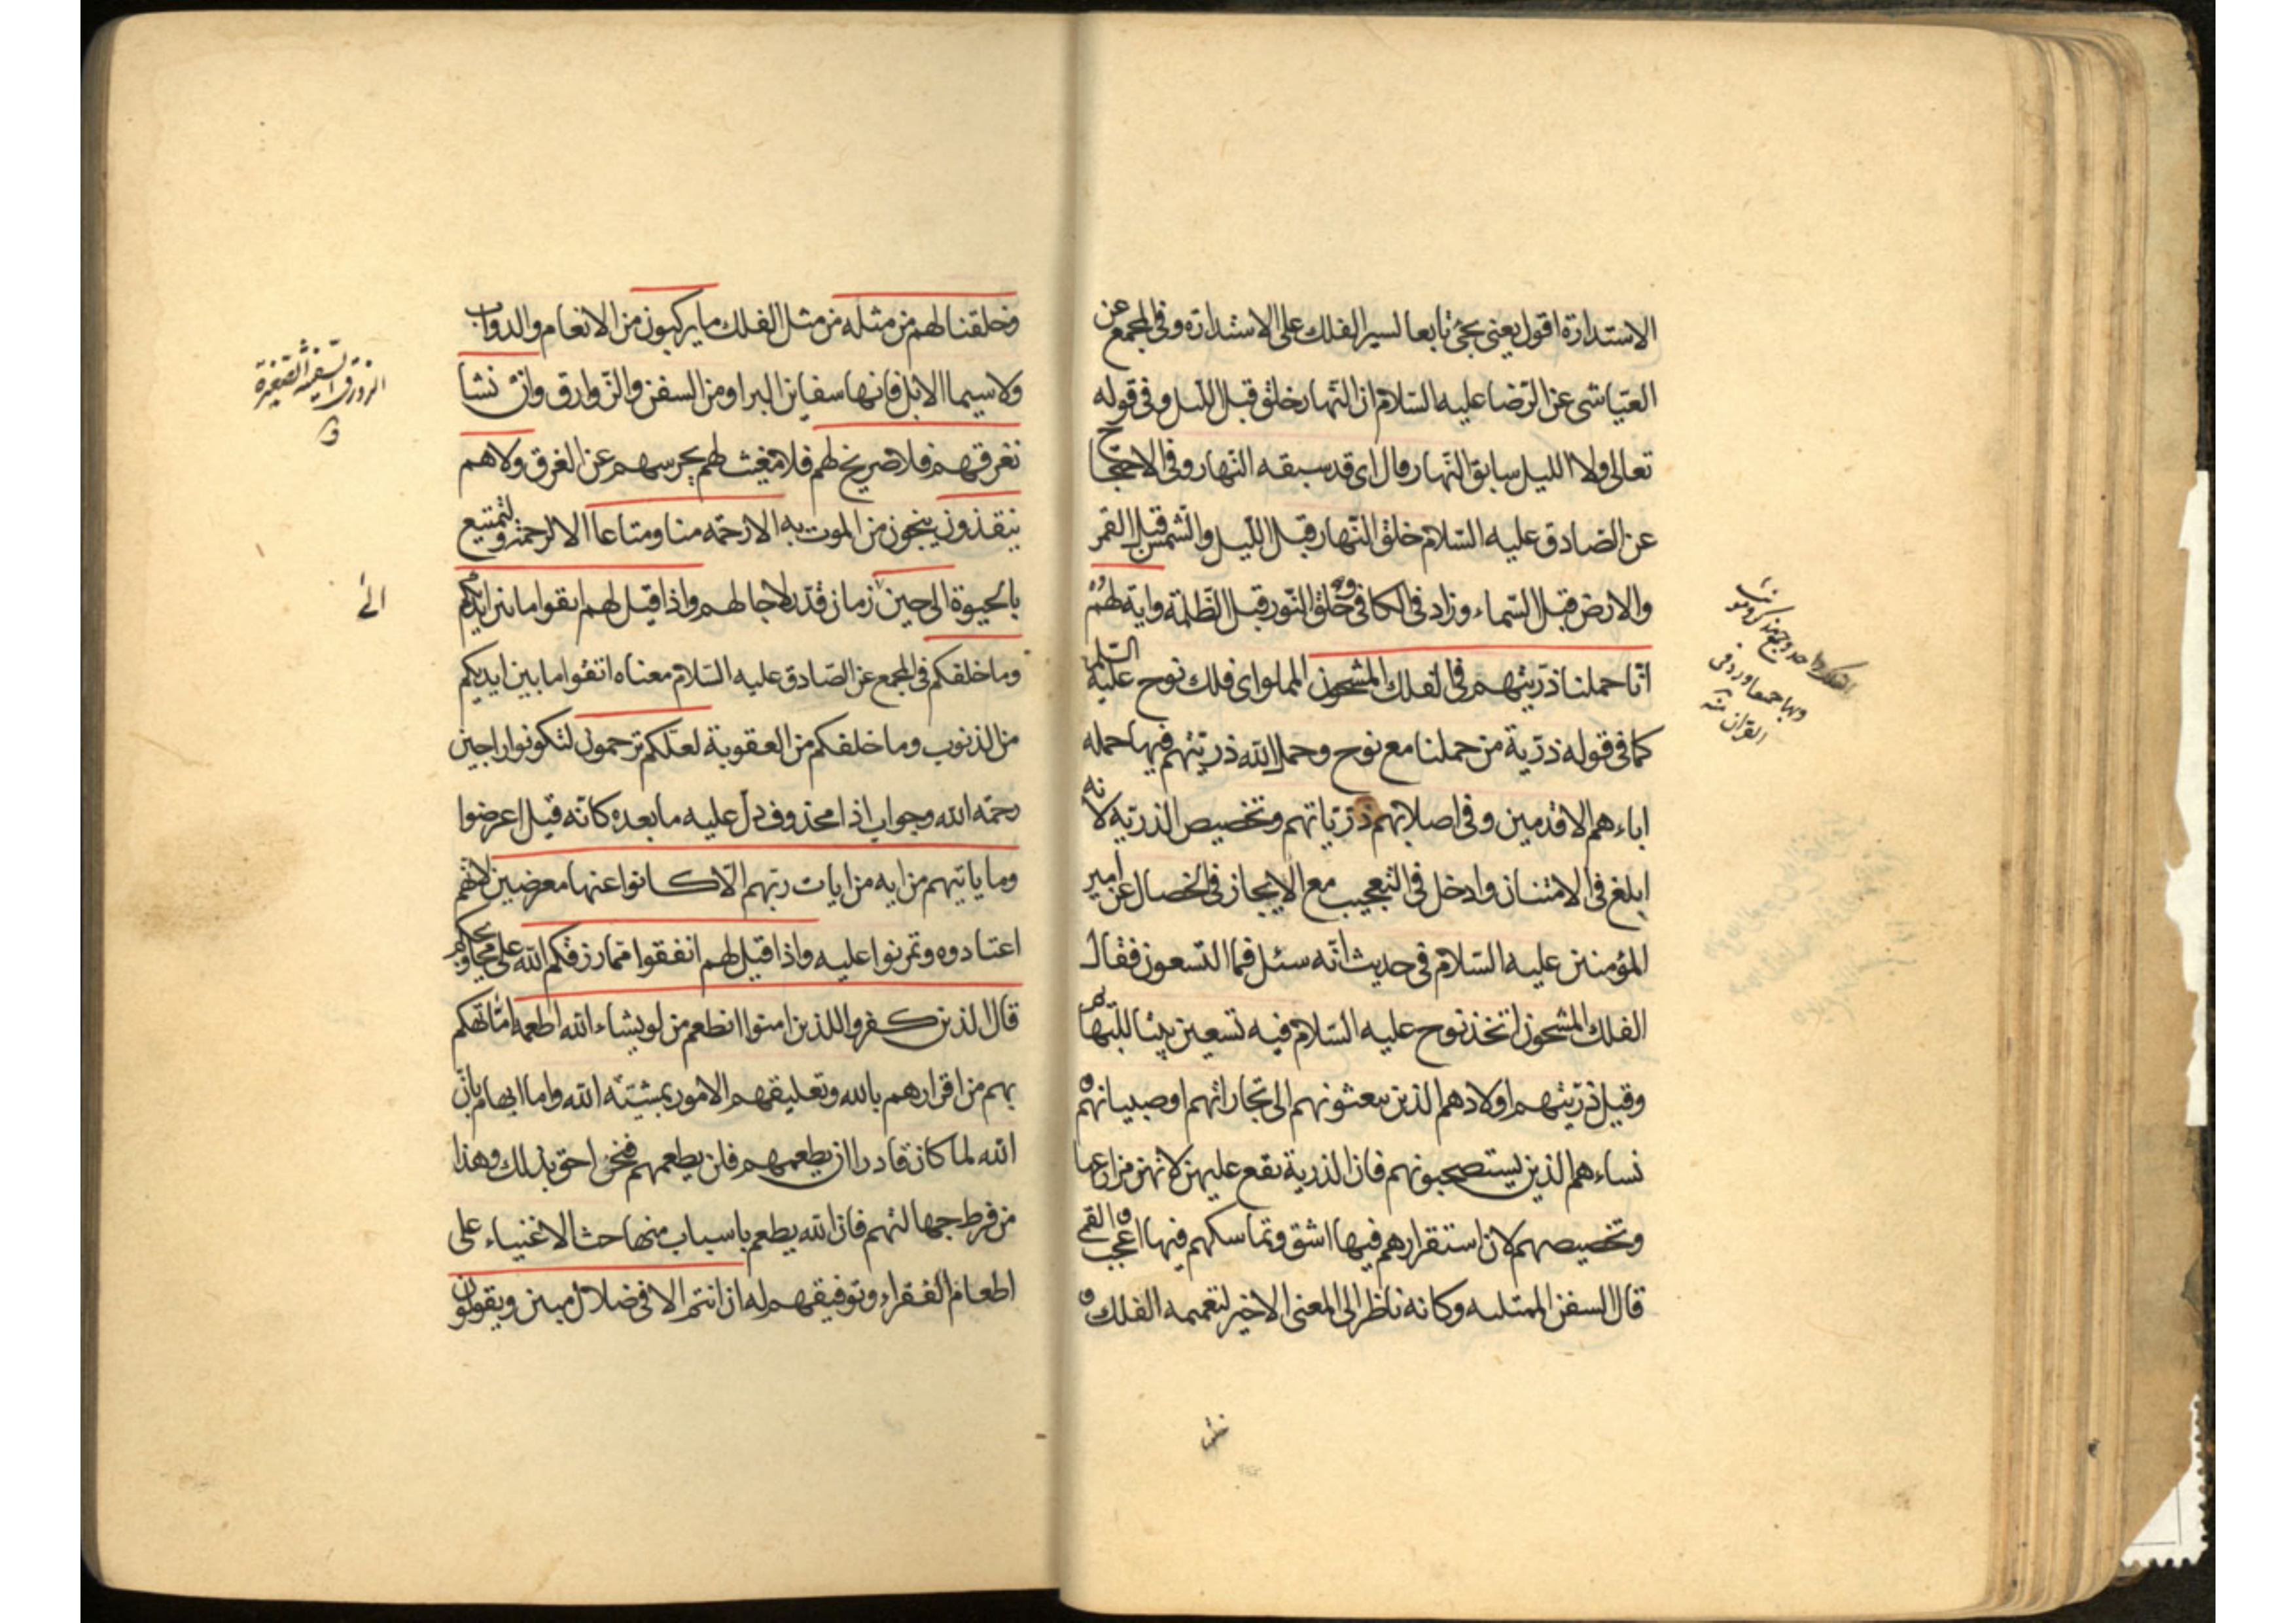 الاستدارة اقول يعنى يجئ تابعا لسير الفلك على الاستدارة وفى المجمع عن
العيّاشى عن الرّضا عليه السّلام ان النّهار خلق قبل الليل وفى قوله
تعالى ولا الليل سابق النّهار قال اى قد سبقه النّهار وفى الاحتجاج
عن الصّادق عليه السّلام خلق النّهار قبل اللّيل والشّمس قبل القمر
والارض قبل السّماء وزاد فى الكافى وخلق النّور قبل الظّلمة واية لهم
انّا حملنا ذرّيتهم فى الفلك المشحون المملو اى فلك نوح عليه السّلم
كما فى قوله ذرّية من حملنا مع نوح وحمل الله ذرّيّتهم فيها حمله
اباءهم الاقدمين وفى اصلابهم ذرّيّاتهم وتخصيص الذرّيّة لانه
ابلغ فى الامتنان وادخل فى التعجيب مع الايجاز فى الخصال عن امير
المؤمنين عليه السّلام فى حديث انّه سئل فما التسعون فقال
الفلك المشحون اتخذ نوح عليه السّلام فيه تسعين بيتا للبهايم
وقيل ذرّيتهم اولادهم الذين يبعثونهم الى تجاراتهم او صبيانهم و
نساءهم الذين يستصحبونهم فان الذرية تقع عليهن لانهن مزارعها
وتخصيصهم لان استقرارهم فيها اشق وتماسكهم فيها اعجب والقمى
قال السفن الممتليه وكانه ناظر الى المعنى الاخير لتعميمه الفلك و
وخلقنا لهم من مثله من مثل الفلك ما يركبون من الانعام والدواب
ولا سيما الابل فانها سفاين البر او من السفن والزّوارق وان نشا
نغرقهم فلا صريخ لهم فلا مغيث لهم يحرسهم عن الغرق ولا هم
ينقذون ينجون من الموت به الا رحمة منا ومتاعا الا لرحمة ولتمتيع
بالحيوة الى حين زمان قدّر لاجالهم واذا قيل لهم اتقوا ما بين ايديكم
وما خلفكم فى المجمع عن الصّادق عليه السّلام معناه اتقوا ما بين ايديكم
من الذنوب وما خلفكم من العقوبة لعلّكم ترحمون لتكونوا راجين
رحمة الله وجواب اذا محذوف دلّ عليه ما بعده كانّه قيل اعرضوا
وما ياتيهم من اية من ايات ربّهم الّا كانوا عنها معرضين لانّهم
اعتادوه وتمرنوا عليه واذا قيل لهم انفقوا ممّا رزقكم الله على محاويجكم
قال الذين كفروا للذين امنوا انطعم من لو يشاء الله اطعمه امّا تهكم
بهم من اقرارهم بالله وتعليقهم الامور بمشيّته الله واما ايهام بانّ
الله لما كان قادرا ان يطعمهم فلن يطعمهم فنحن احق بذلك وهذا
من فرط جهالتهم فان الله يطعم باسباب منها حث الاغنياء على
اطعام الفقراء وتوفيقهم له ان انتم الا فى ضلال مبين ويقولون
الزورق السفينة الصغيرة
ق